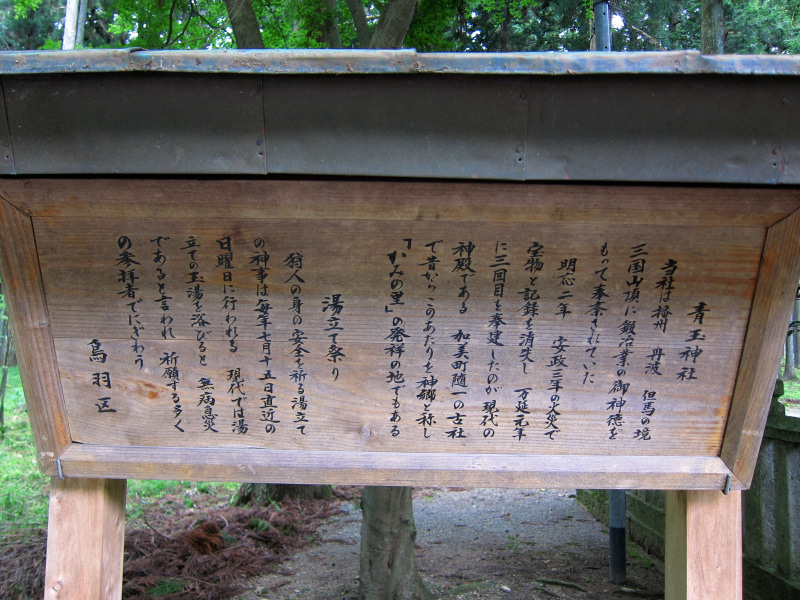 青玉神社
当社は播州 丹波 但馬の境
三国山頂に鍛治業の御神徳を
もって奉祭されていた
明応二年 安政三年の火災で
宝物と記録を消失し 万延元年
に三回目を奉建したのが現代の
神殿である 加美町随一の古社
で昔からこのあたりを神郷と称し
「かみの里」の発祥の地でもある
湯立て祭り
狩人の身の安全を祈る湯立て
の神事は毎年七月十五日直近の
日曜日に行われる 現代では湯
立ての玉湯を浴びると 無病息災
であると言われ 祈願する多く
の参拝者でにぎわう
鳥羽区